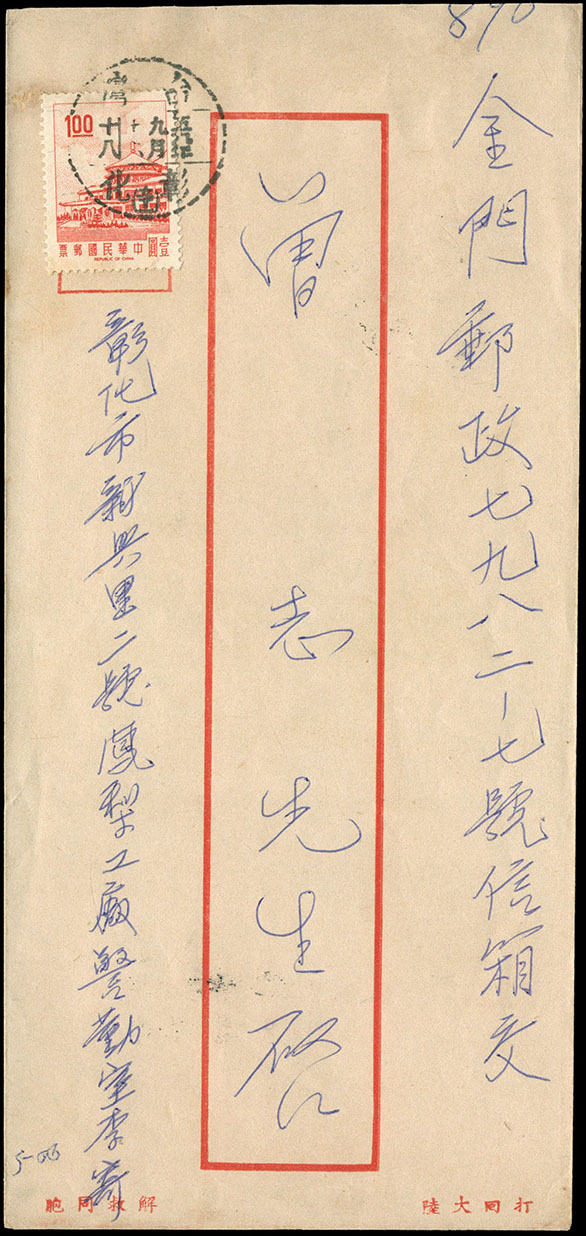 890
金門郵政七九八二-七號信箱交
曾志先生啟
彰化市新興里二號鳳梨工廠警勤室李寄
1.00
票郵國民華中
壹圓
REPUBLIC OF CHINA
彰化
九月
十八
5-06
胞同救解
陸大回打